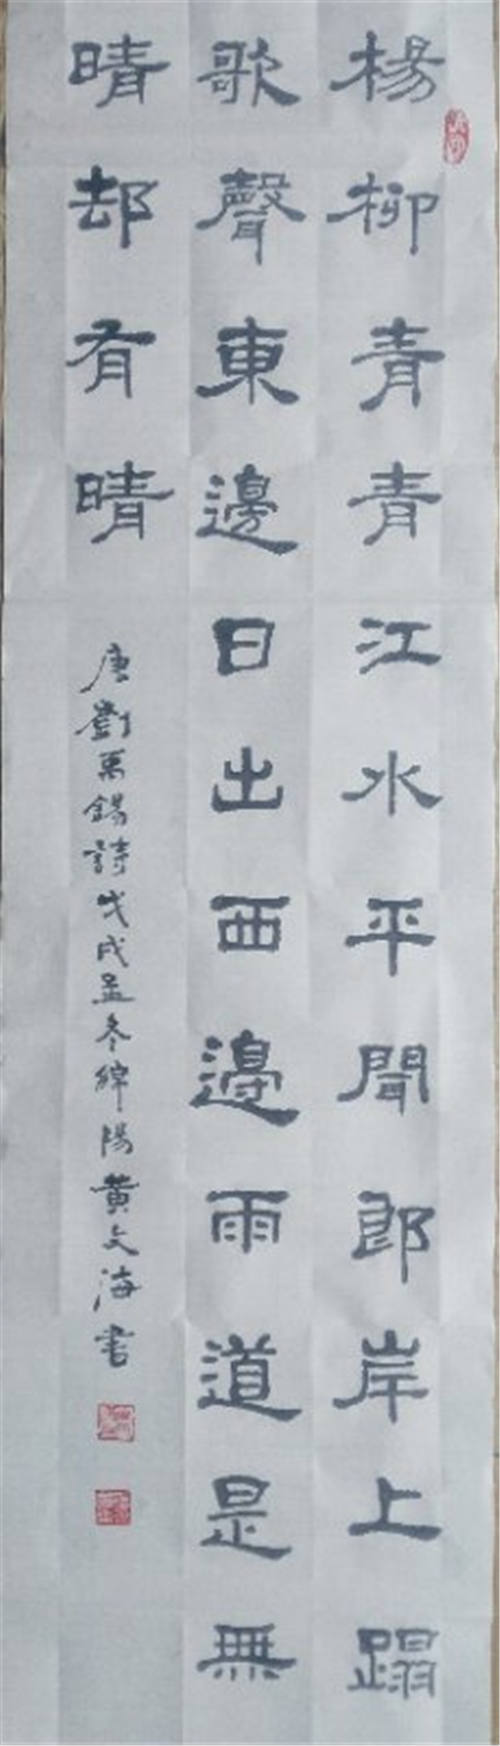 楊柳青青江水平聞郎岸上蹋
歌聲東邊日出西邊雨道是無
晴却有晴
唐劉禹錫詩戊戌孟冬綿陽黄文海書